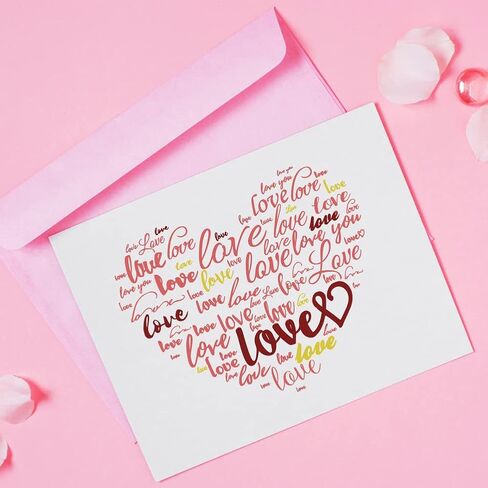 love you
love love love
love you love love love
love Love love
love Love love love love love love
love love love love love you love
love you love love love love Love
love love love love love
love love love love love
love love love
love love love
love love love love
love love
love love